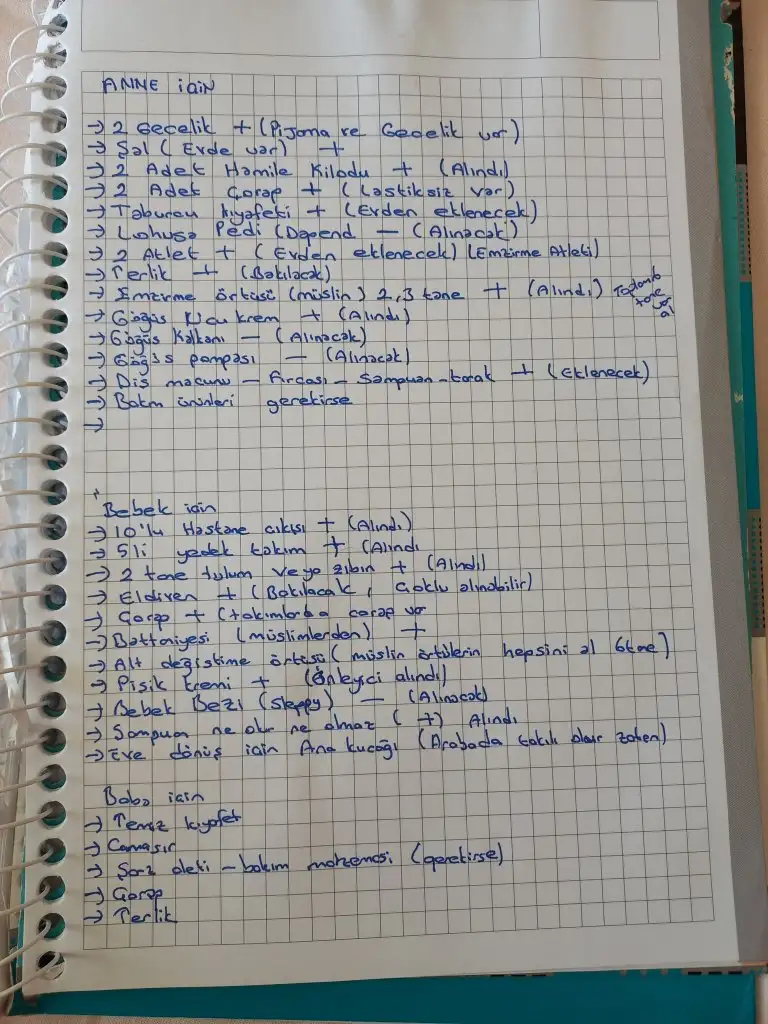 ANNE için
→ 2 Gecelik + (Pijama ve Gecelik var)
→ Şal (Evde var) +
→ 2 Adet Hamile Kilodu + (Alındı)
→ 2 Adet Çorap + (Lastiksiz var)
→ Taburcu kıyafeti + (Evden eklenecek)
→ Lohusa Pedi (Depend — (Alınacak)
→ 2 Atlet + (Evden eklenecek) (Emzirme Atleti)
→ Terlik + (Bakılacak)
→ Emzirme örtüsü (müslin) 2,3 tane + (Alındı) Toplam 6 tane var al
→ Göğüs Ucu krem + (Alındı)
→ Göğüs Kalkanı — (Alınacak)
→ Göğüs pompası — (Alınacak)
→ Diş macunu — Fırçası — Şampuan — tarak + (Eklenecek)
→ Bakım ürünleri gerekirse
→
+
Bebek için
→ 10'lu Hastane çıkışı + (Alındı)
→ 5li yedek takım + (Alındı
→ 2 tane tulum veya zıbın + (Alındı)
→ Eldiven + (Bakılacak, Çoklu alınabilir)
→ Çorap + (takımlarda çorap var
→ Battaniyesi (müslimlerden) +
→ Alt değiştime örtüsü (müslin örtülerin hepsini al 6tane)
→ Pişik kremi + (Önleyici alındı)
→ Bebek Bezi (Sleppy) — (Alınacak)
→ Şampuan ne olur ne olmaz (+) Alındı
→ Eve dönüş için Ana kucağı (Arabada takılı olur zaten)
Baba için
→ Temiz kıyafet
→ Çamaşır
→ Şarz aleti — bakım malzemesi (gerekirse)
→ Çorap
→ Terlik